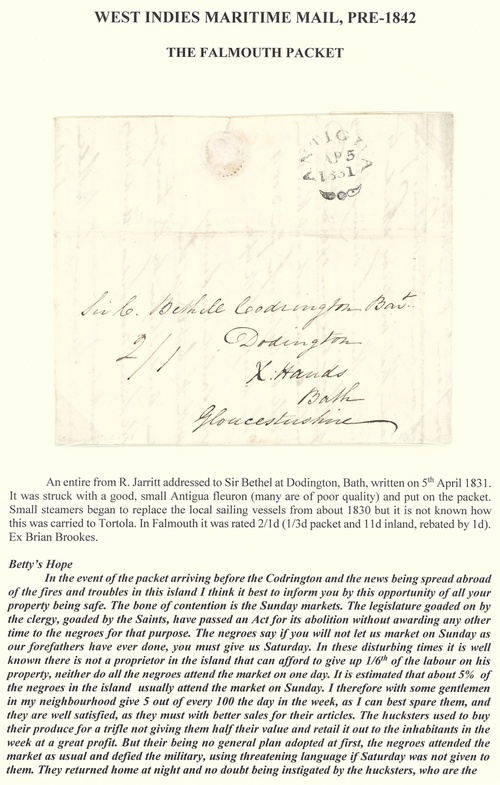 WEST INDIES MARITIME MAIL, PRE-1842
THE FALMOUTH PACKET
ANTIGUA
AP 5
1831
Sir C. Bethell Codrington Bart.
2/1
Dodington
X. Hands
Bath
Gloucestershire
An entire from R. Jarritt addressed to Sir Bethel at Dodington, Bath, written on 5th April 1831.
It was struck with a good, small Antigua fleuron (many are of poor quality) and put on the packet.
Small steamers began to replace the local sailing vessels from about 1830 but it is not known how
this was carried to Tortola. In Falmouth it was rated 2/1d (1/3d packet and 11d inland, rebated by 1d).
Ex Brian Brookes.
Betty's Hope
In the event of the packet arriving before the Codrington and the news being spread abroad
of the fires and troubles in this island I think it best to inform you by this opportunity of all your
property being safe. The bone of contention is the Sunday markets. The legislature goaded on by
the clergy, goaded by the Saints, have passed an Act for its abolition without awarding any other
time to the negroes for that purpose. The negroes say if you will not let us market on Sunday as
our forefathers have ever done, you must give us Saturday. In these disturbing times it is well
known there is not a proprietor in the island that can afford to give up 1/6th of the labour on his
property, neither do all the negroes attend the market on one day. It is estimated that about 5% of
the negroes in the island usually attend the market on Sunday. I therefore with some gentlemen
in my neighbourhood give 5 out of every 100 the day in the week, as I can best spare them, and
they are well satisfied, as they must with better sales for their articles. The hucksters used to buy
their produce for a trifle not giving them half their value and retail it out to the inhabitants in the
week at a great profit. But their being no general plan adopted at first, the negroes attended the
market as usual and defied the military, using threatening language if Saturday was not given to
them. They returned home at night and no doubt being instigated by the hucksters, who are the